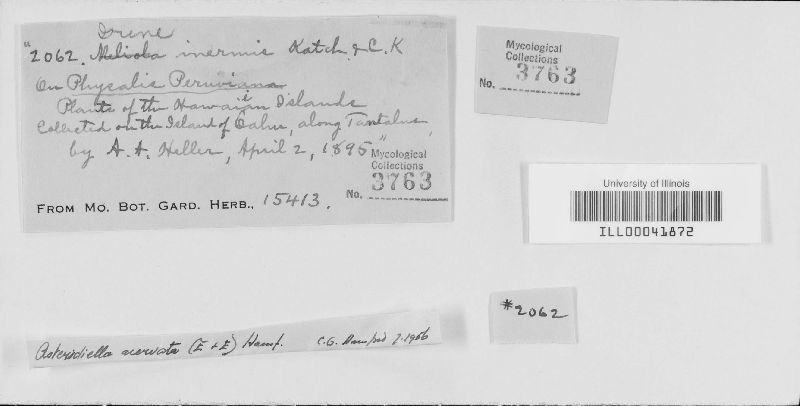 Irene
"2062. Meliola inermis Kalch. & C.K
On Physalis Peruviana
Plants of the Hawaiian Islands
Collected on the Island of Oahu, along Tantalus,
by A. A. Heller, April 2, 1895"
Mycological
Collections
No. 3763
FROM MO. BOT. GARD. HERB., 15413.
Mycological
Collections
No. 3763
University of Illinois
ILL00041872
#2062
Asteridiella acervata (E + E) Hansf.
C.G. Hansford 7.1956